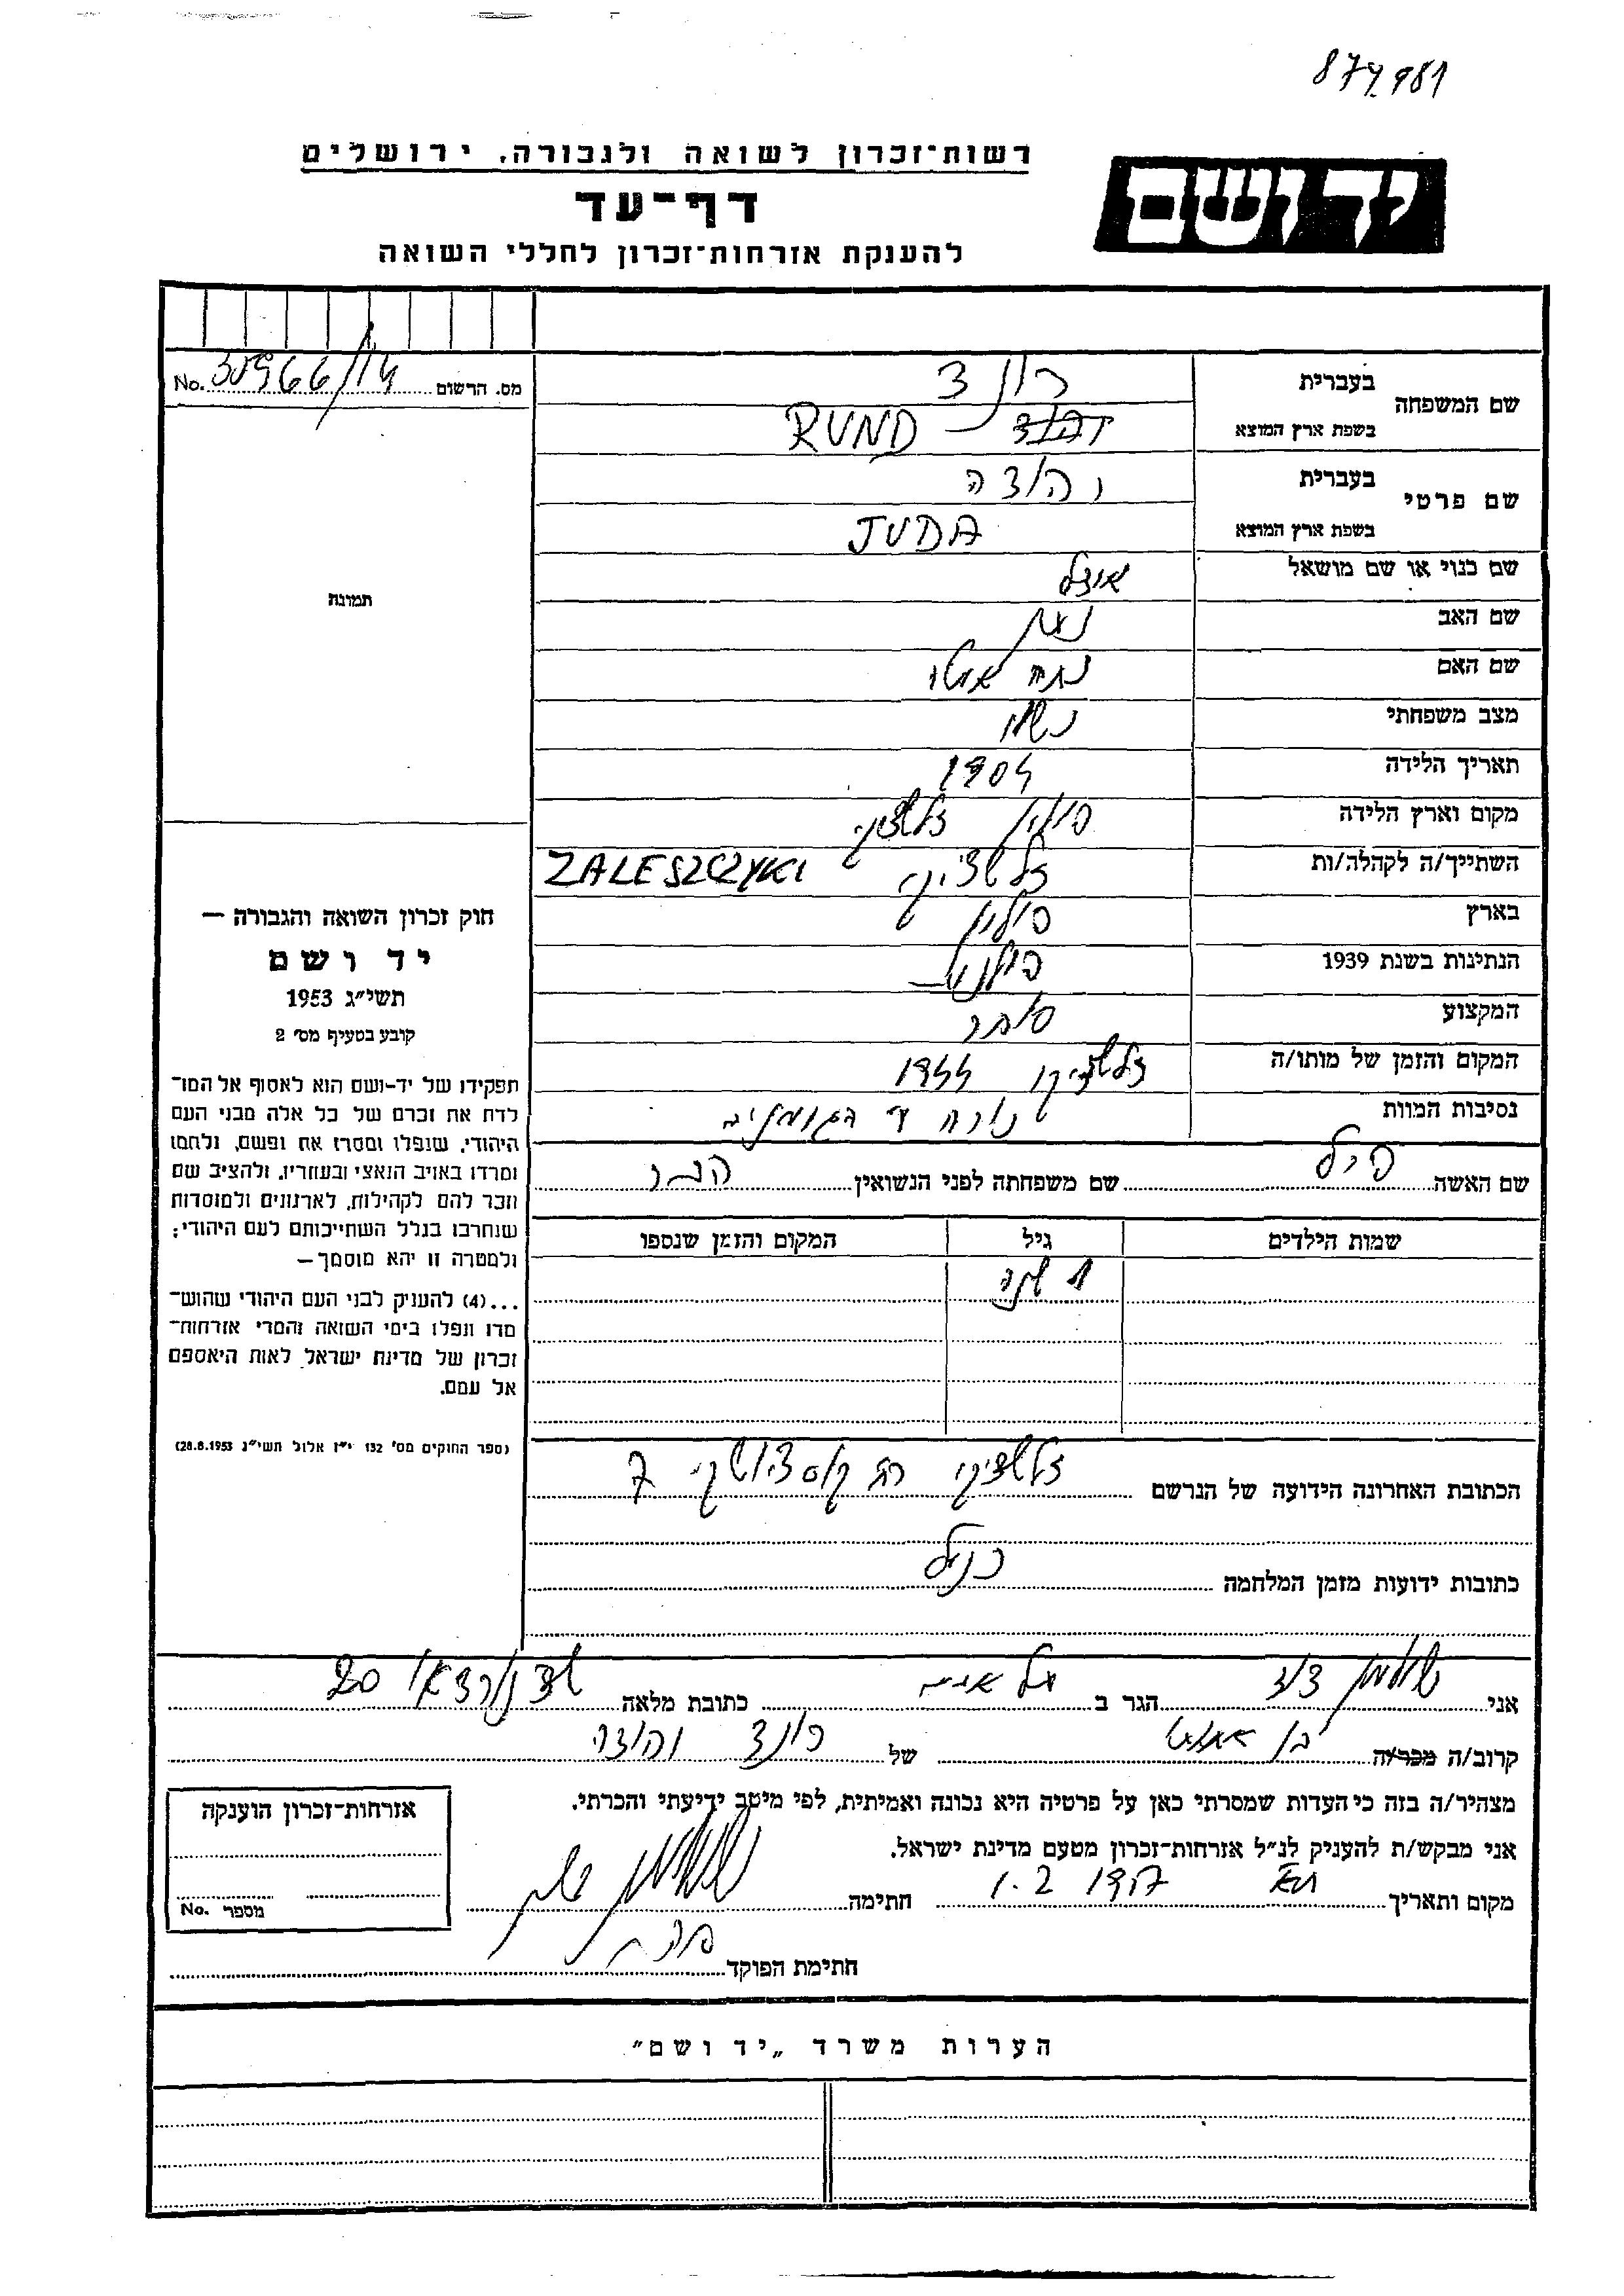 874981
רשות־זכרון לשואה ולגבורה, ירושלים
יד ושם
דף־עד
להענקת אזרחות־זכרון לחללי השואה
מס. הרשום No.
שם המשפחה
בעברית רונד
בשפת ארץ המוצא RUND
שם פרטי
בעברית יהודה
בשפת ארץ המוצא JUDA
שם כנוי או שם מושאל
שם האב
שם האם
מצב משפחתי נשוי
תאריך הלידה 1904
מקום וארץ הלידה פולין זלשציקי
השתייך/ה לקהלה/ות זלשציקי ZALESZCZYKI
בארץ פולין
הנתינות בשנת 1939 פולנית
המקצוע סוחר
המקום והזמן של מותו/ה זלשציקי 1944
נסיבות המוות נורה ע"י הגרמנים
שם האשה שם משפחתה לפני הנשואין
שמות הילדים גיל המקום והזמן שנספו
שנה
הכתובת האחרונה הידועה של הנרשם זלשציקי רח' קוסציושקי 7
כתובות ידועות מזמן המלחמה כנ"ל
תמונה
חוק זכרון השואה והגבורה —
יד ושם
תשי״ג 1953
קובע בסעיף מס׳ 2
תפקידו של יד־ושם הוא לאסוף אל המו־
לדת את זכרם של כל אלה מבני העם
היהודי, שנפלו ומסרו את נפשם, נלחמו
ומרדו באויב הנאצי ובעוזריו, ולהציב שם
וזכר להם לקהילות, לארגונים ולמוסדות
שנחרבו בגלל השתייכותם לעם היהודי;
ולמטרה זו יהא מוסמך —
...(4) להעניק לבני העם היהודי שהוש־
מדו ונפלו בימי השואה והמרי אזרחות־
זכרון של מדינת ישראל לאות היאספם
אל עמם.
(ספר החוקים מס׳ 132 י״ז אלול תשי״ג 28.8.1953)
אני הגר ב כתובת מלאה 20
קרוב/ה מכר/ה של רונד יהודה
מצהיר/ה בזה כי העדות שמסרתי כאן על פרטיה היא נכונה ואמיתית, לפי מיטב ידיעתי והכרתי.
אני מבקש/ת להעניק לנ״ל אזרחות־זכרון מטעם מדינת ישראל.
מקום ותאריך חתימה
חתימת הפוקד
אזרחות־זכרון הוענקה
מספר No.
הערות משרד „יד ושם״